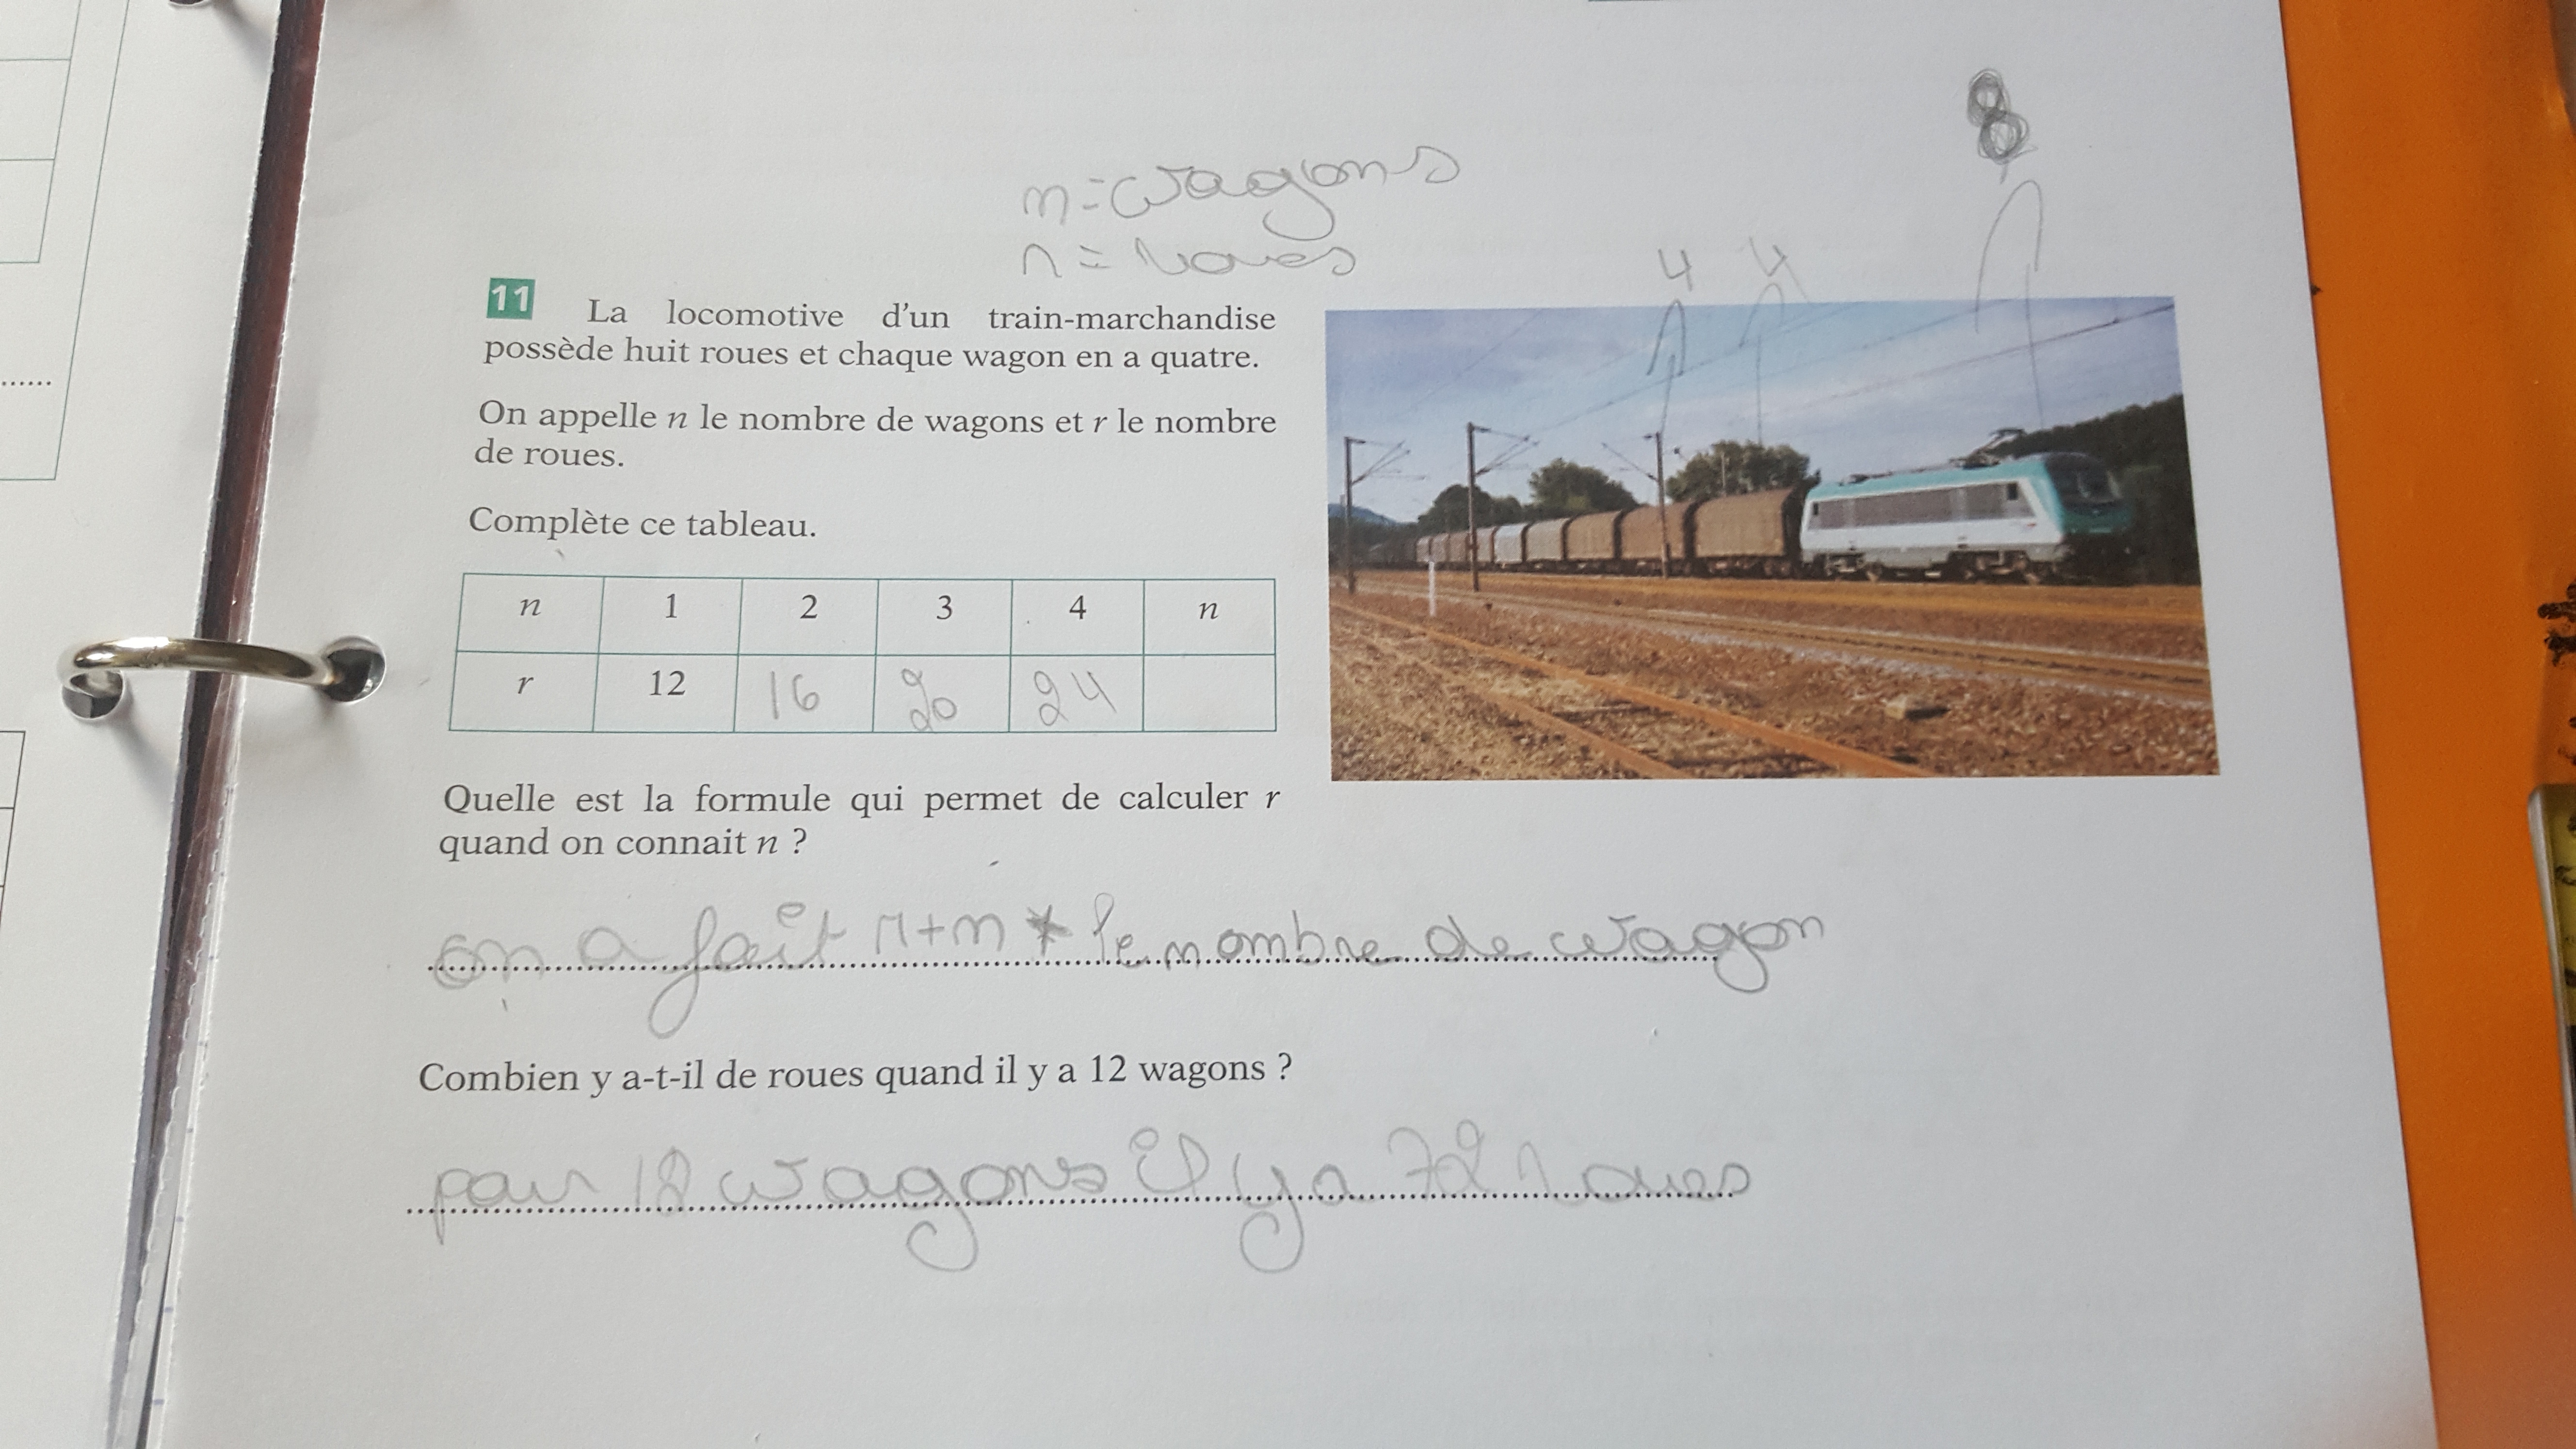 8
n=wagons
r=roues
4 4
11 La locomotive d'un train-marchandise
possède huit roues et chaque wagon en a quatre.
On appelle n le nombre de wagons et r le nombre
de roues.
Complète ce tableau.
n 1 2 3 4 n
r 12 16 20 24
Quelle est la formule qui permet de calculer r
quand on connait n ?
on a fait r+n * le nombre de wagon
Combien y a-t-il de roues quand il y a 12 wagons ?
pour 12 wagons il y a 72 roues